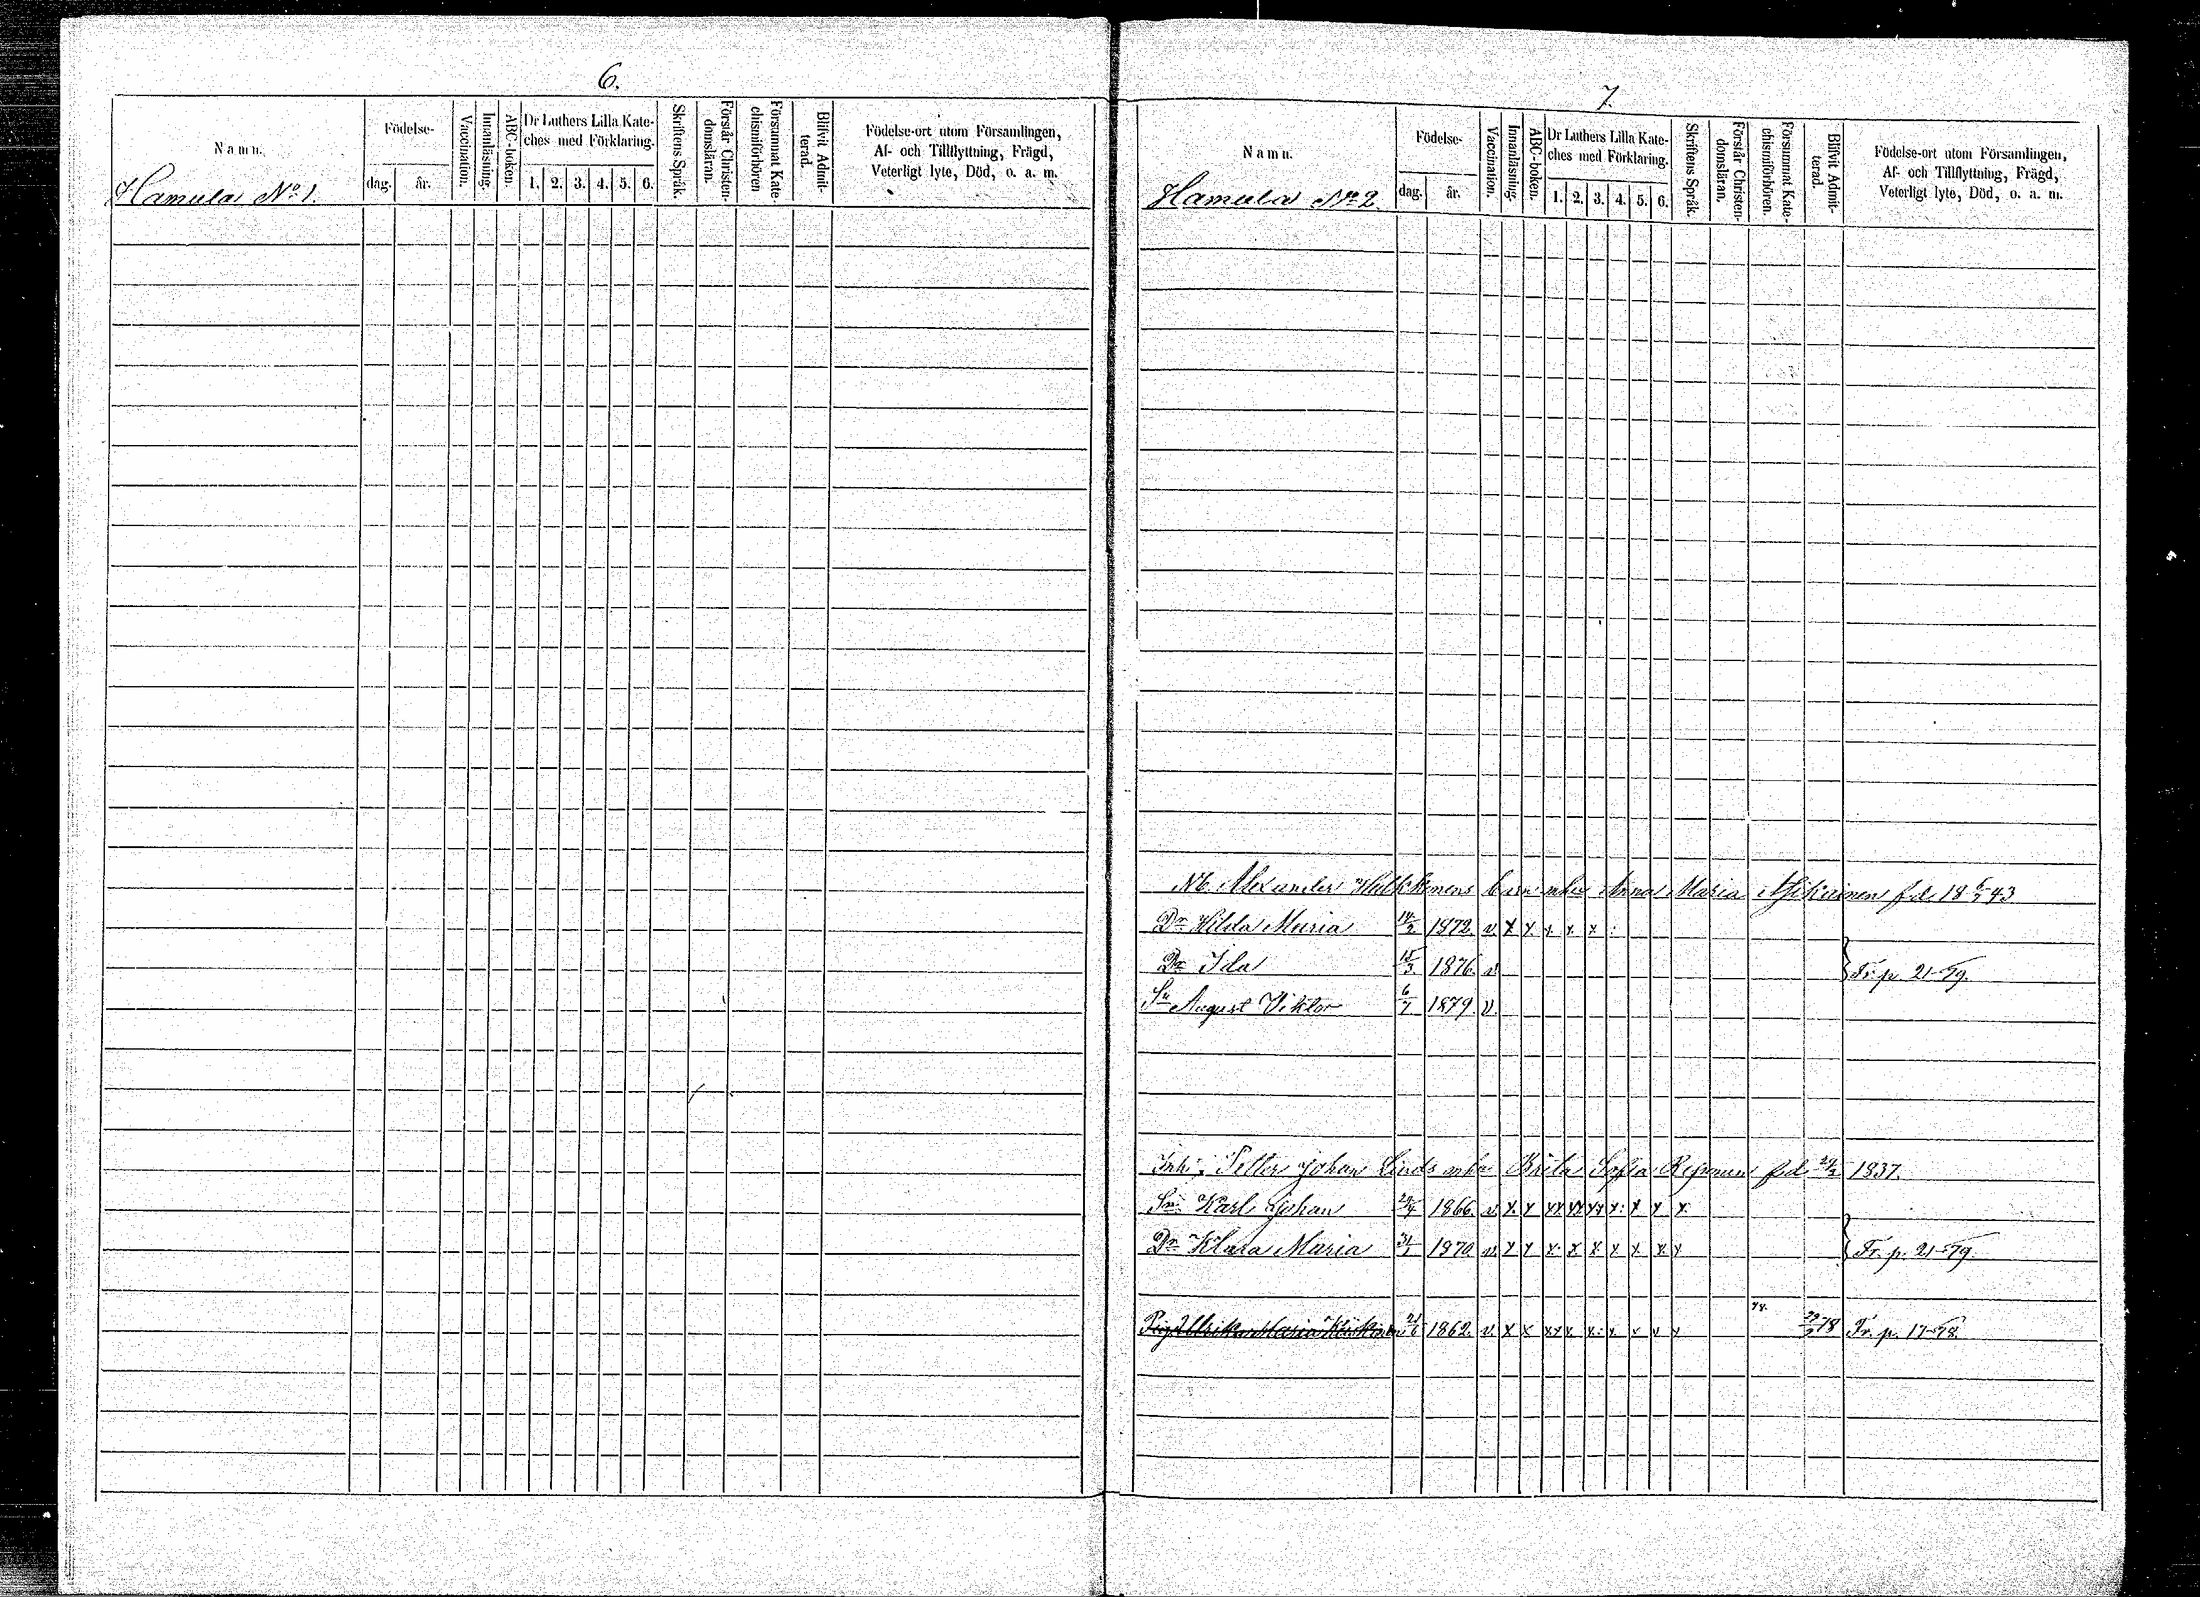 6.
Namn.
Födelse-
dag. år.
Vaccination.
Innanläsning.
ABC-boken.
Dr Luthers Lilla Kate-
ches med Förklaring.
1. 2. 3. 4. 5. 6.
Skriftens Språk.
Förstår Christen-
domsläran.
Försummat Kate
chismiförhören
Blifvit Admit-
terad.
Födelse-ort utom Församlingen,
Af- och Tillflyttning, Frägd,
Veterligt lyte, Död, o. a. m.
Hamula No 1.
7.
Namn.
Födelse-
dag. år.
Vaccination.
Innanläsning
ABC-boken.
Dr Luthers Lilla Kate-
ches med Förklaring.
1. 2. 3. 4. 5. 6.
Skriftens Språk.
Förstår Christen-
domsläran.
Försummat Kate-
chismiförhören.
Blifvit Admit-
terad.
Födelse-ort utom Församlingen,
Af- och Tillflyttning, Frägd,
Veterligt lyte, Död, o. a. m.
Hamula No 2.
Alexander barn Anna Maria fd. 18 43
Dr Hilda Maria 14/2 1872. v. x x x x x
Dr Ida 15/3 1876. v.
Fr. p. 21-79.
Sn August Viktor 6/7 1879. v.
Inh: Petter Johan Brita Sofia Reponen fd 1837.
Sn Karl Johan 29/4 1866. v. x x xx xx xx x x x x
Dr Klara Maria 31/1 1870. v. x x x x x x x x x
Fr. p. 21-79.
Pig. Ulrika Maria 1862. v. x x xx x x x x x x 78 Fr. p. 17-78.